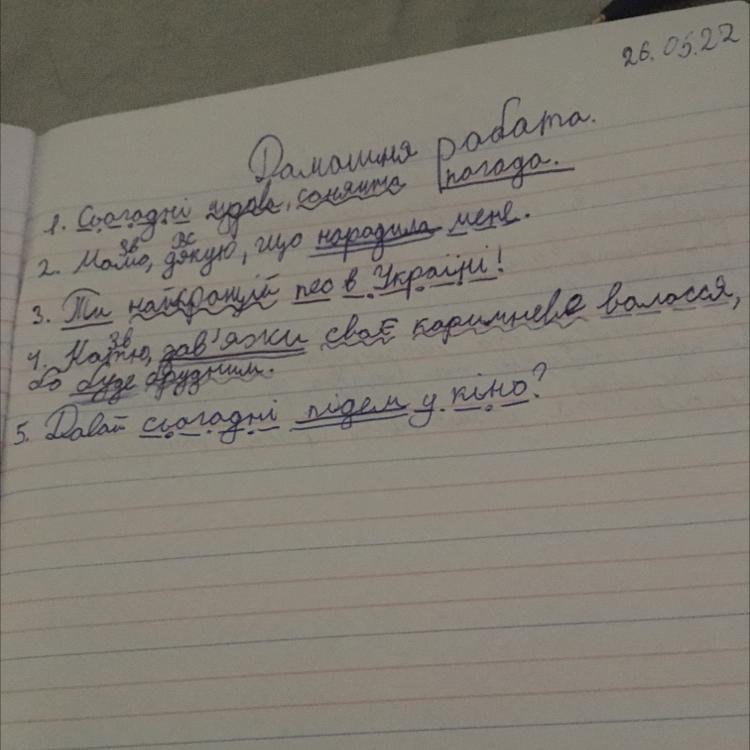 26.05.22
Домашня робота.
1. Сьогодні чудова, сонячна погода.
2. Мамо, дякую, що народила мене.
зв вс
3. Ти найкращий пес в Україні!
4. Катю, зав'яжи своє коричневе волосся,
зв
бо буде брудним.
5. Давай сьогодні підем у кіно?